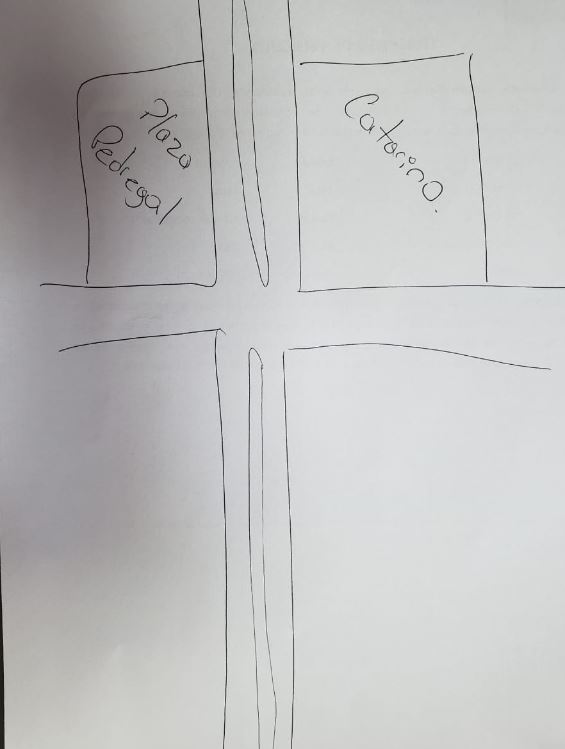 Plaza
Pedregal
Catarino.